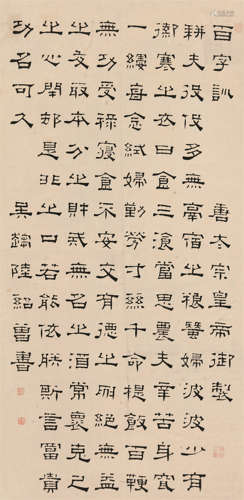 百字訓 唐太宗皇帝御製
耕夫役役多無鬲宿之粮蠶婦波波少有
御寒之衣日食三飡當思農夫辛苦身穿
一縷每念織婦勤勞寸絲千命匙飯百鞭
無功受祿寢食不安交有德之朋絕無益
之友取本分之財戒無名之酒常褱克己
之心閉却是非之口若能依朕斯言富貴
功名可久 吳趨陸紹曾書